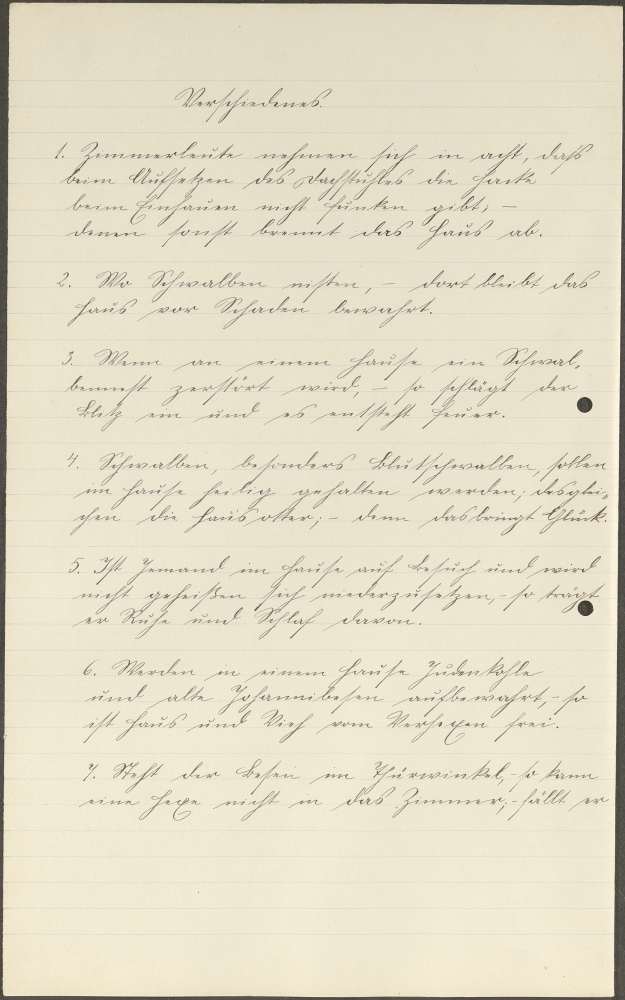 Verschiedenes.
1. Zimmerleute nehmen sich in acht, daß
beim Aufsetzen des Dachstuhles die Hacke
beim Einhauen nicht Funken gibt, –
denen sonst brennt das Haus ab.
2. Wo Schwalben nisten, – dort bleibt das
Haus vor Schaden bewahrt.
3. Wenn an einem Hause ein Schwal-
bennest zerstört wird, – so schlägt der
Blitz ein und es entsteht Feuer.
4. Schwalben, besonders Blutschwalben, sollen
im Hause heilig gehalten werden; desglei-
chen die Hausotter; – denn das bringt Glück.
5. Ist Jemand im Hause auf Besuch und wird
nicht geheißen sich niederzusetzen, – so trägt
er Ruhe und Schlaf davon.
6. Werden in einem Hause Judenkohle
und alte Johannibesen aufbewahrt, – so
ist Haus und Vieh vom Verhexen frei.
7. Steht der Besen im Thürwinkel, – so kann
eine Hexe nicht in das Zimmer; – fällt er